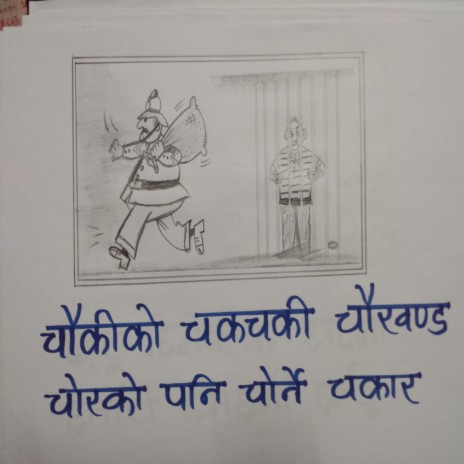 चौकीको चकचकी चौरवण्ड
चोरको पनि चोर्ने चकार